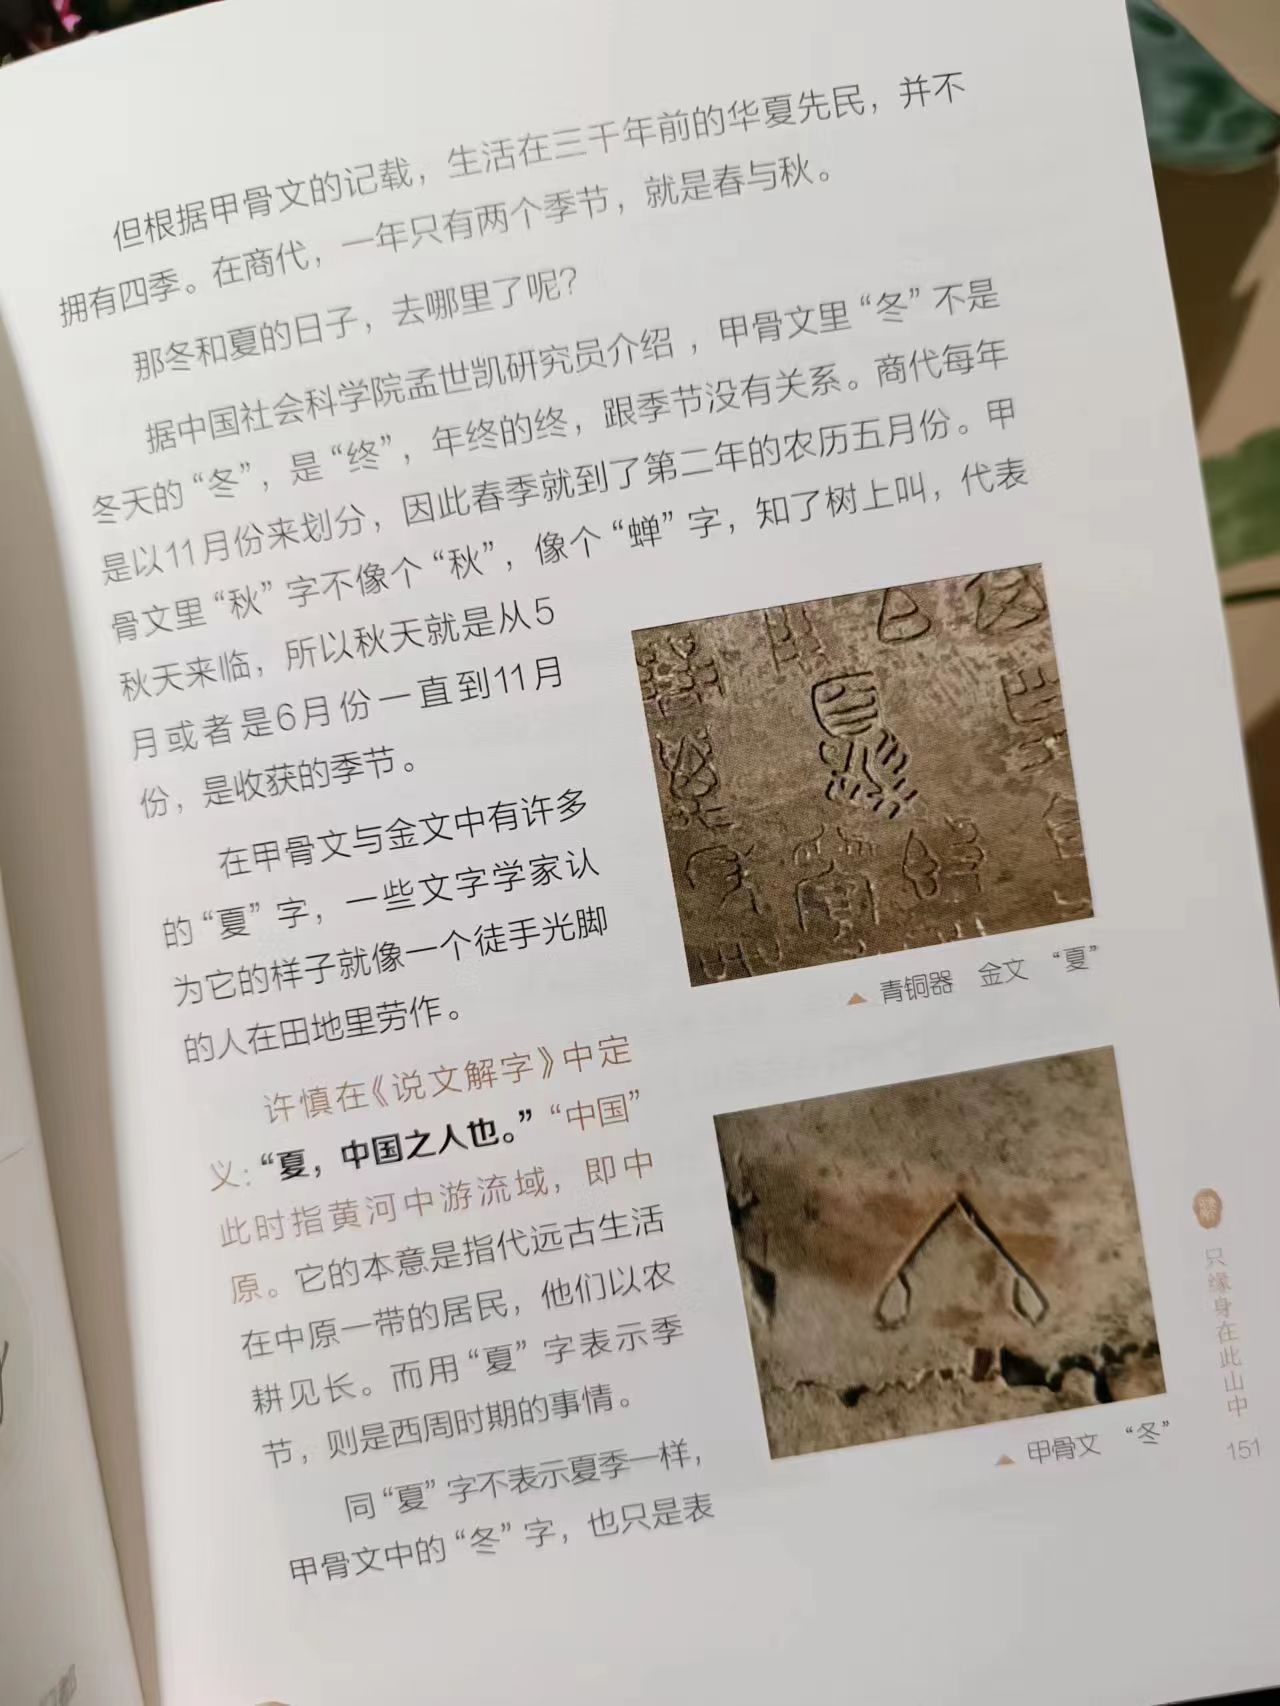 但根据甲骨文的记载，生活在三千年前的华夏先民，并不
拥有四季。在商代，一年只有两个季节，就是春与秋。
那冬和夏的日子，去哪里了呢？
据中国社会科学院孟世凯研究员介绍，甲骨文里“冬”不是
冬天的“冬”，是“终”，年终的终，跟季节没有关系。商代每年
是以11月份来划分，因此春季就到了第二年的农历五月份。甲
骨文里“秋”字不像个“秋”，像个“蝉”字，知了树上叫，代表
秋天来临，所以秋天就是从5
月或者是6月份一直到11月
份，是收获的季节。
在甲骨文与金文中有许多
的“夏”字，一些文字学家认
为它的样子就像一个徒手光脚
的人在田地里劳作。
许慎在《说文解字》中定
义：“夏，中国之人也。”“中国”
此时指黄河中游流域，即中
原。它的本意是指代远古生活
在中原一带的居民，他们以农
耕见长。而用“夏”字表示季
节，则是西周时期的事情。
同“夏”字不表示夏季一样，
甲骨文中的“冬”字，也只是表
青铜器 金文 “夏”
甲骨文 “冬”
只缘身在此山中
151